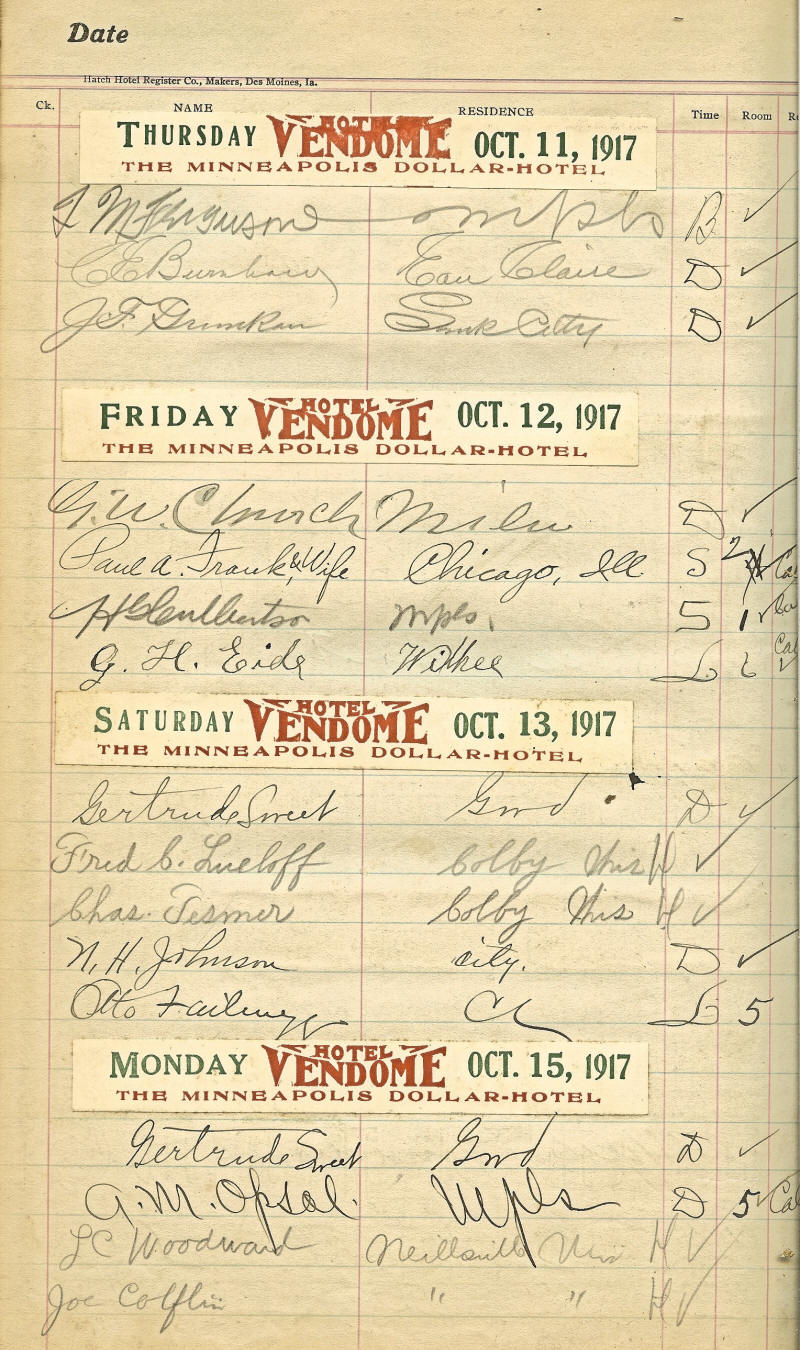 Date
Hatch Hotel Register Co., Makers, Des Moines, Ia.
Ck. NAME RESIDENCE Time Room
THURSDAY HOTEL VENDOME OCT. 11, 1917
THE MINNEAPOLIS DOLLAR-HOTEL
M Ferguson mpls B ✓
CE Burnham Eau Claire D ✓
J.F. Sauk City D ✓
FRIDAY HOTEL VENDOME OCT. 12, 1917
THE MINNEAPOLIS DOLLAR-HOTEL
G.W. Church Milw D ✓
Paul A. Frank & Wife Chicago, Ill S 2
H Culbertson Mpls. S 1 ✓
G. H. Eide Withee L
SATURDAY HOTEL VENDOME OCT. 13, 1917
THE MINNEAPOLIS DOLLAR-HOTEL
Gertrude Sweet Gwd D ✓
Fred C. Lueloff Colby Wis H ✓
Chas. Tesmer Colby Wis H ✓
N. H. Johnson city. D ✓
Otto L 5
MONDAY HOTEL VENDOME OCT. 15, 1917
THE MINNEAPOLIS DOLLAR-HOTEL
Gertrude Sweet Gwd D ✓
A. M. Opsal. Mpls D 5 ✓ Cal
LC Woodward Neillsville Wis H ✓
Joe " " H ✓